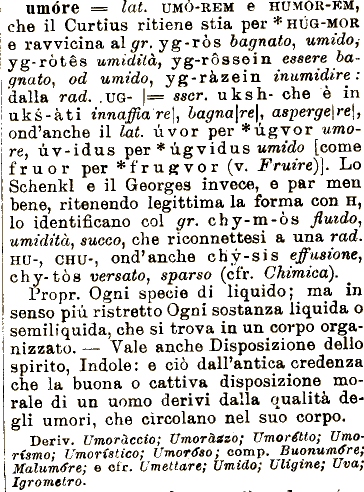 umóre = lat. UMÓ-REM e HUMOR-EM,
che il Curtius ritiene stia per *HÚG-MOR
e ravvicina al gr. yg-ròs bagnato, umido,
yg-rotês umidità, yg-rôssein essere ba-
gnato, od umido, yg-ràzein inumidire:
dalla rad. UG- |= sscr. uksh- che è in
ukš-àti innaffia|re|, bagna|re|, asperge|re|,
ond'anche il lat. úvor per *úgvor umo-
re, úv-idus per *úgvidus umido [come
fruor per *frugvor (v. Fruire)]. Lo
Schenkl e il Georges invece, e par meu
bene, ritenendo legittima la forma con H,
lo identificano col gr. chy-m-òs fluido,
umidità, succo, che riconnettesi a una rad.
HU-, CHU-, ond'anche chý-sis effusione,
chy-tòs versato, sparso (cfr. Chimica).
Propr. Ogni specie di liquido; ma in
senso più ristretto Ogni sostanza liquida o
semiliquida, che si trova in un corpo orga-
nizzato. — Vale anche Disposizione dello
spirito, Indole: e ciò dall'antica credenza
che la buona o cattiva disposizione mo-
rale di un uomo derivi dalla qualità de-
gli umori, che circolano nel suo corpo.
Deriv. Umoràccio; Umoràzzo; Umorétto; Umo-
rísmo; Umorístico; Umoróso; comp. Buonumóre;
Malumóre; e cfr. Umettare; Umido; Uligine; Uva;
Igrometro.